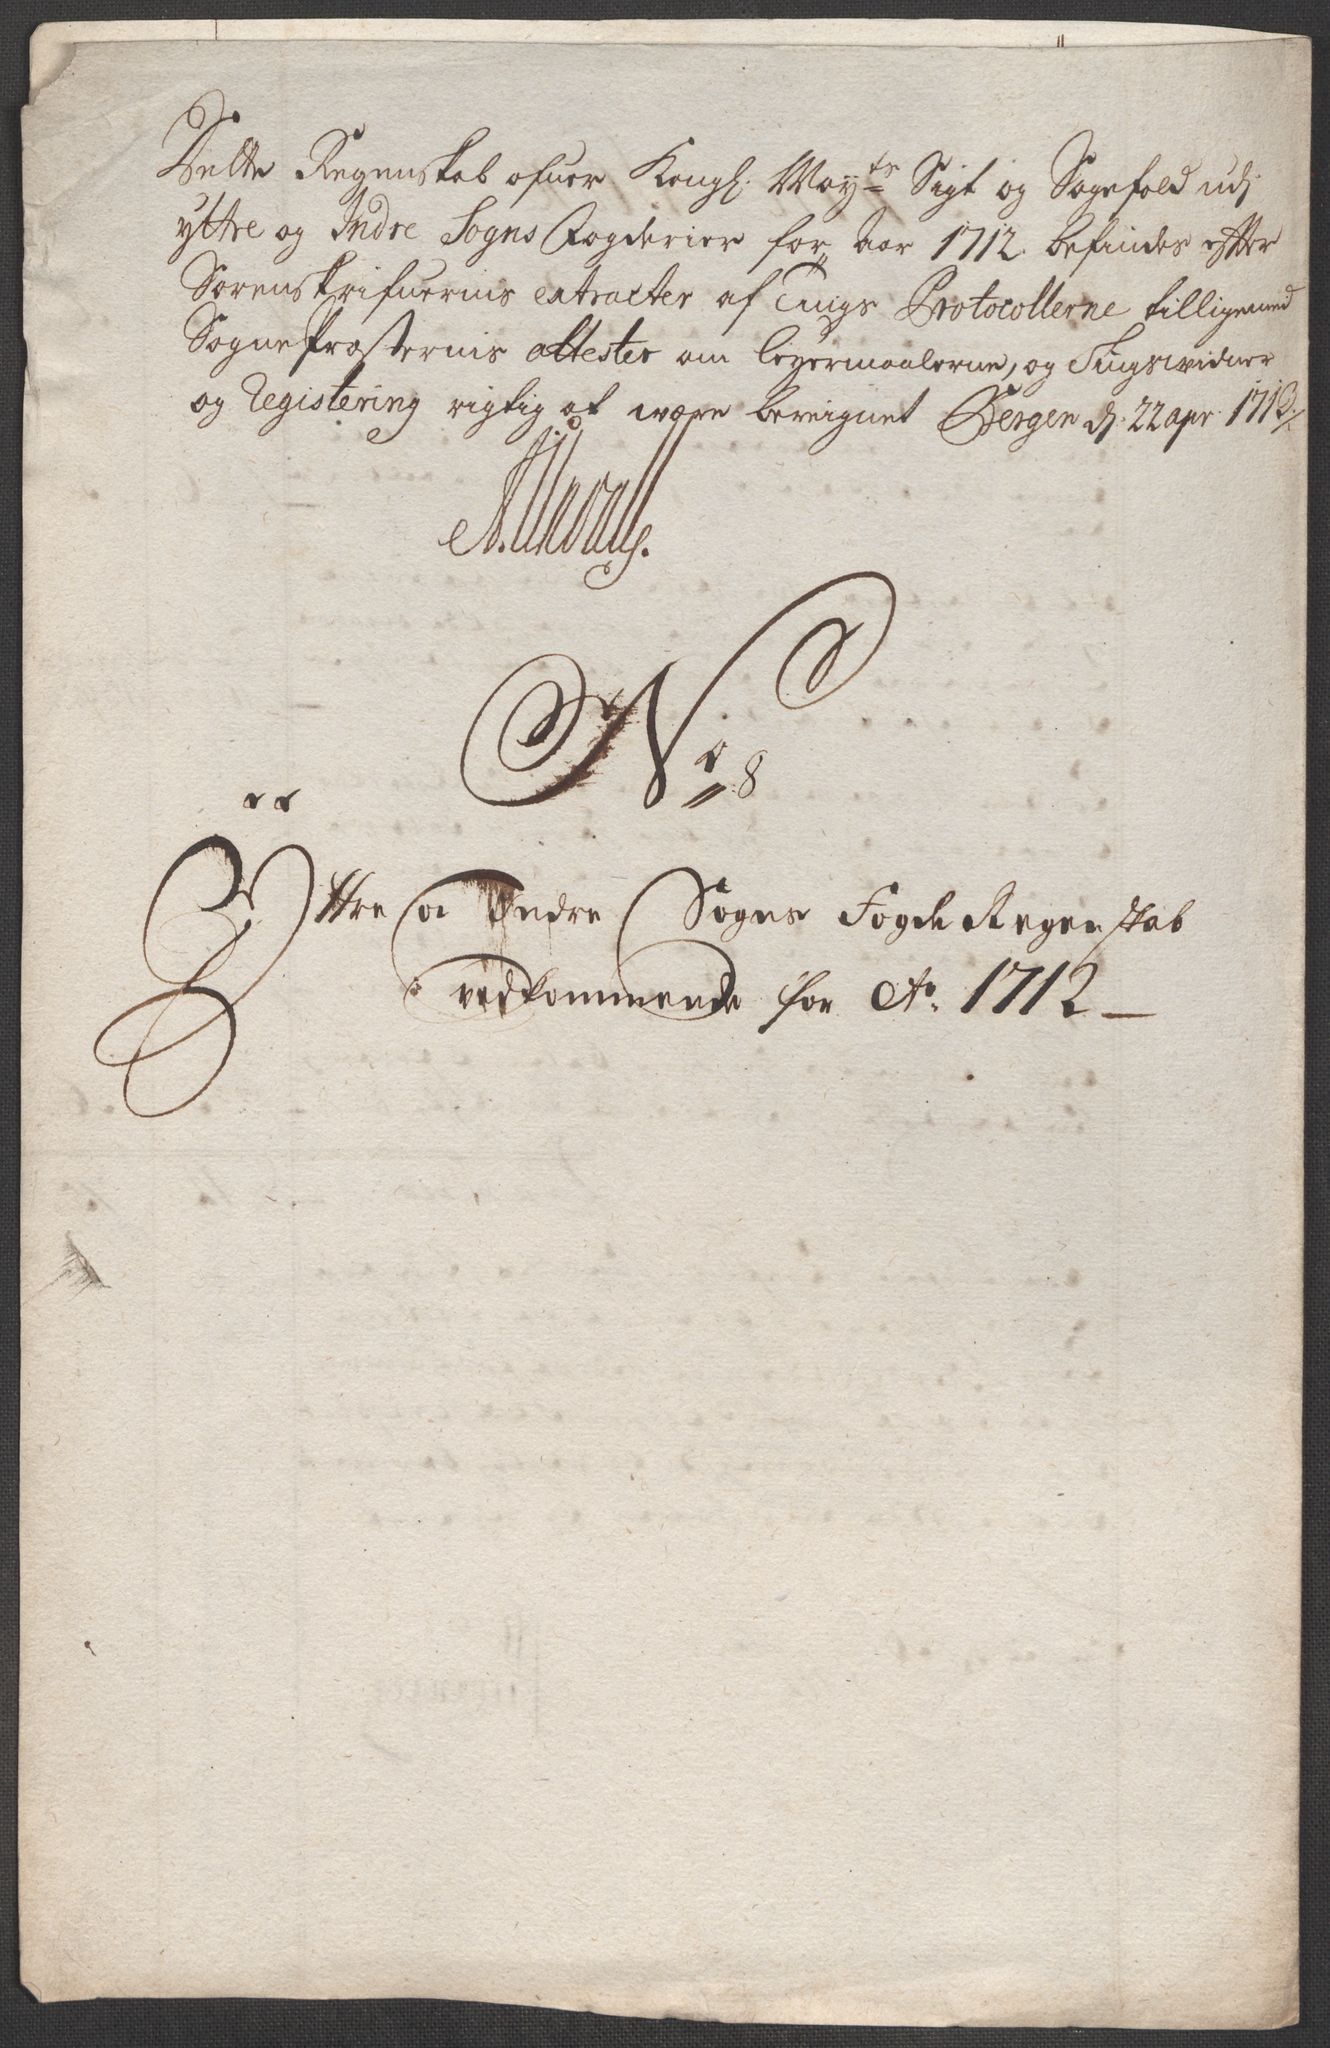 Dette Regenskab ofuer Kongl: May:ts Sigt og Sagefald udj
yttre og Indre Sogns Fogderier for Aar 1712 befindes efter
Sorenskrifuernis extracter af Tings Protocollerne tilligemed
SognePræsternis attester om leyermaalerne, og Tingswidner
og Registering rigtig at være bereignet Bergen d: 22 apr: 1713 /
No 8
Ÿttre og Indre Sogns Fogde Regenskab
vedkommende for Ao. 1712